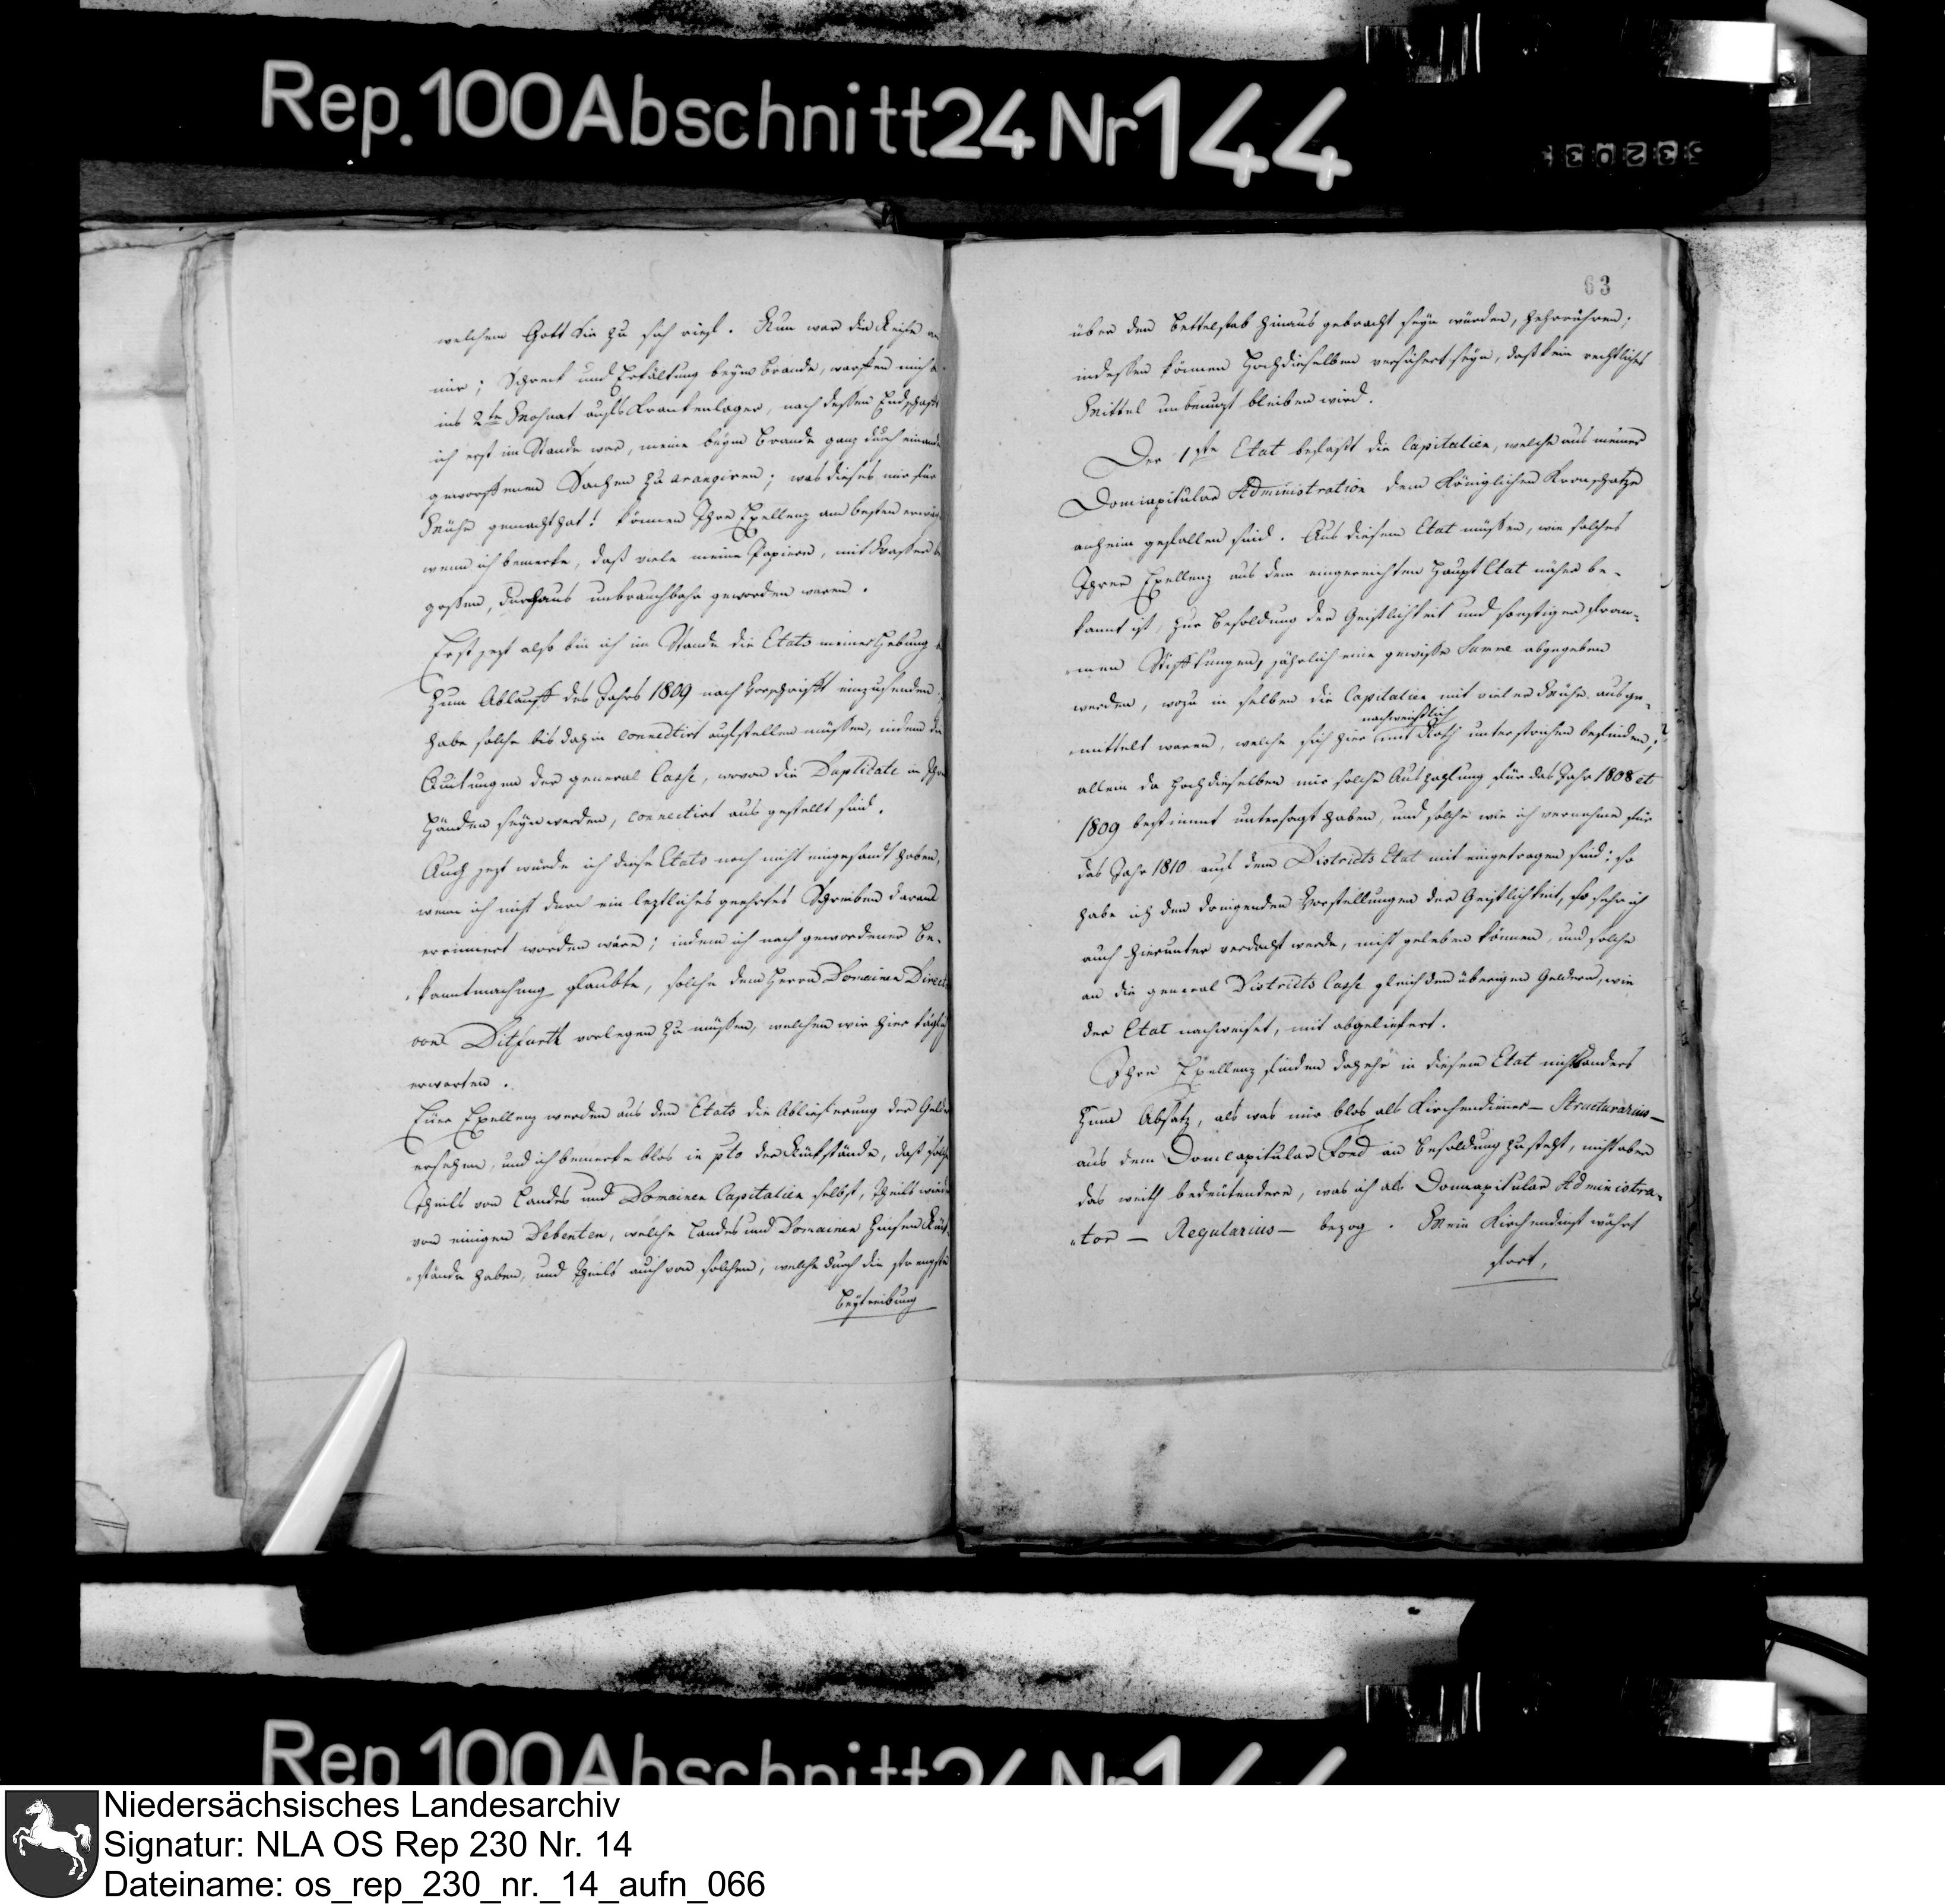 Rep. 100 Abschnitt 24 Nr 144
welchem Gott sie zu sich rief. Nun war die Reihe an
mir; Schreck und Erkältung beym Brande, warffen mich
ins 2te Mohnat aufs Krankenlager, nach dessen Endschaft
ich erst im Stande war, meine beym Brande ganz durch einander
geworffenen Sachen zu arangiren; was dieses mir für
Mühe gemacht hat! können Ihre Exellenz am besten
wenn ich bemerke, daß viele meine Papiere, mit Wasser be
gossen, durchaus unbrauchbahr geworden waren.
Erst jezt also bin ich im Stande die Etats meiner Hebung
zum Ablauff des Jahrs 1809 nach Vorschrifft einzusenden;
habe solche bis dahin connectirt aufstellen müssen, indem die
Quitungen der general Casse, wovon die Duplicate in Ihren
Händen seyn werden, connectirt ausgestellt sind.
Auch jezt würde ich diese Etats noch nicht eingesandt haben,
wenn ich nicht durch ein leztliches geehrtes Schreiben daran
errinnert worden wäre; indem ich nach gewordener Be-
kanntmachung glaubte, solche dem Herrn Domainen Direct
von Ditfurth vorlegen zu müssen, welchen wir hier täglich
erwarten.
Eüer Exellenz werden aus den Etats die Ablieferung der Gelder
ersehen, und ich bemerke blos in pto der Rückstände, daß solche
theils von Landes und Domainen Capitalien selbst, theils wieder
von einigen Debenten, welche Landes und Domainen Zinsen Rück-
stände haben, und theils auch von solchen, welche durch die strengste
Beytreibung
63
über den Bettelstab hinaus gebracht seyn würden, herrühren;
indessen können Hochdieselben versichert seyn, daß kein rechtliches
Mittel unbenuzt bleiben wird.
Der 1ste Etat befaßt die Capitalien, welche aus meiner
Domcapitular Administration dem Königlichen Kronschatze
anheim gefallen sind. Aus diesem Etat müssen, wie solches
Ihrer Exellenz aus dem eingereichten Haupt Etat näher be-
kannt ist, zur Besoldung der Geistlichkeit und sonstigen from-
men Stifftungen, jährlich eine gewisse Summe abgegeben
werden, wozu in selben die Capitalien mit vieler Mühe ausge-
nachweißlich
mittelt waren, welche sich hier mit Roth unterstrichen befinden;
allein da Hochdieselben mir solche Auszahlung für das Jahr 1808 et
1809 bestimmt untersagt haben, und solche wie ich vernehme für
das Jahr 1810 auf dem Districts Etat mit eingetragen sind: so
habe ich den dringenden Vorstellungen der Geistlichkeit, so sehr ich
auch hierunter verdacht werde, nicht geleben können, und solche
an die general Districts Casse gleich den übrigen Geldern, wie
der Etat nachweiset, mit abgeliefert.
Ihre Exellenz finden dahehr in diesem Etat nichts anders
zum Absatz, als was mir blos als Kirchendiener - Structurarius -
aus dem Domcapitular Fond an Besoldung zusteht, nicht aber
das weith bedeütendere, was ich als Domcapitular Administra-
tor - Regularius - bezog. Mein Kirchendienst währt
fort,
Rep. 100 Abschnitt 24 Nr 144
Niedersächsisches Landesarchiv
Signatur: NLA OS Rep 230 Nr. 14
Dateiname: os_rep_230_nr._14_aufn_066